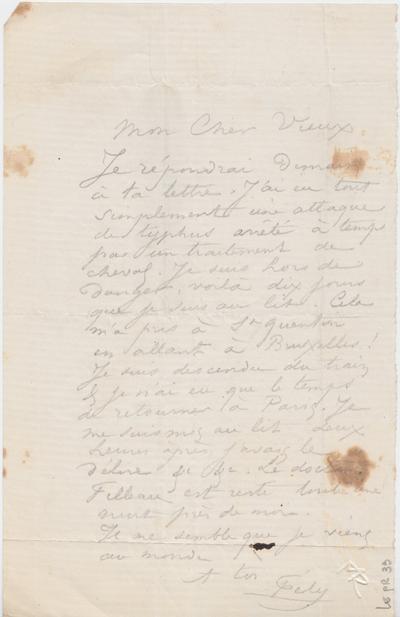 Mon Cher Vieux
Je répondrai Demain
à ta lettre. J'ai eu tout
simplement une attaque
de typhus arrêté à temps
par un traitement de
cheval. Je suis hors de
Danger, voilà dix jours
que je suis au lit. Cela
m'a pris à St quentin
en allant à Bruxelles!
Je suis descendu du train
& je n'ai eu que le temps
de retourner à Paris. Je
me suis mis au lit deux
heures après j'avais le
Délire &c &c. Le docteur
Filleau est resté toute une
nuit près de moi.
Il me semble que je viens
au monde
A toi Fély
LEpR 33